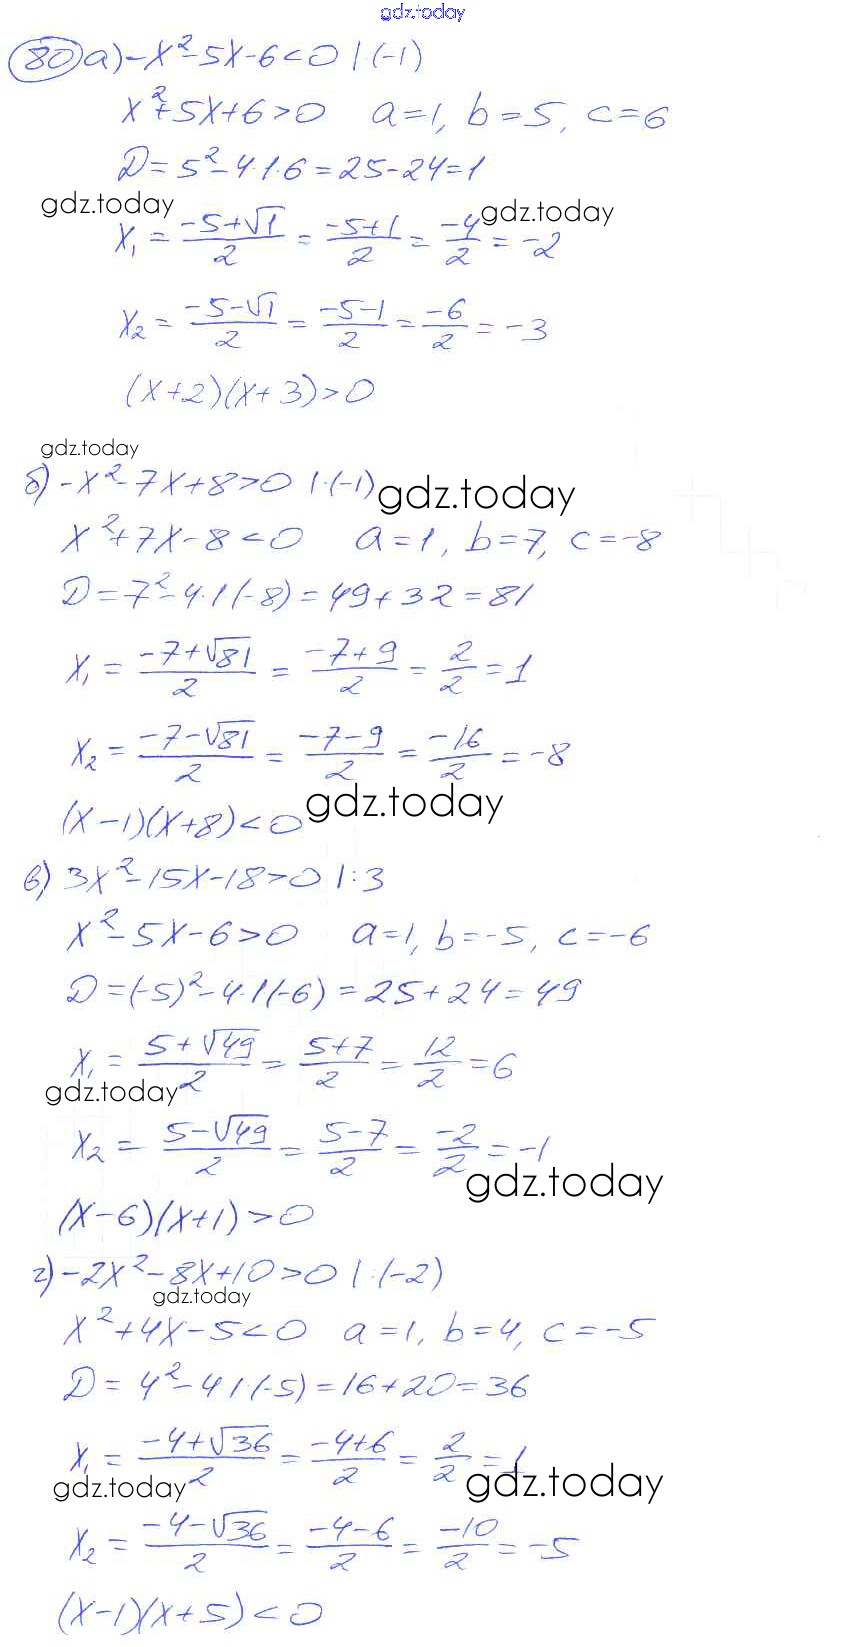 gdz.today
80 а) -x²-5x-6<0 | (-1)
x²+5x+6>0 a=1, b=5, c=6
D=5²-4·1·6=25-24=1
gdz.today
gdz.today
x₁ = (-5+√1)/2 = (-5+1)/2 = -4/2 = -2
x₂ = (-5-√1)/2 = (-5-1)/2 = -6/2 = -3
(x+2)(x+3)>0
gdz.today
б) -x²-7x+8>0 |·(-1)
gdz.today
x²+7x-8<0 a=1, b=7, c=-8
D=7²-4·1(-8)=49+32=81
x₁ = (-7+√81)/2 = (-7+9)/2 = 2/2 = 1
x₂ = (-7-√81)/2 = (-7-9)/2 = -16/2 = -8
gdz.today
(x-1)(x+8)<0
в) 3x²-15x-18>0 |:3
x²-5x-6>0 a=1, b=-5, c=-6
D=(-5)²-4·1(-6)=25+24=49
x₁ = (5+√49)/2 = (5+7)/2 = 12/2 = 6
gdz.today
x₂ = (5-√49)/2 = (5-7)/2 = -2/2 = -1
gdz.today
(x-6)(x+1)>0
г) -2x²-8x+10>0 |:(-2)
gdz.today
x²+4x-5<0 a=1, b=4, c=-5
D=4²-4·1·(-5)=16+20=36
x₁ = (-4+√36)/2 = (-4+6)/2 = 2/2 = 1
gdz.today
gdz.today
x₂ = (-4-√36)/2 = (-4-6)/2 = -10/2 = -5
(x-1)(x+5)<0